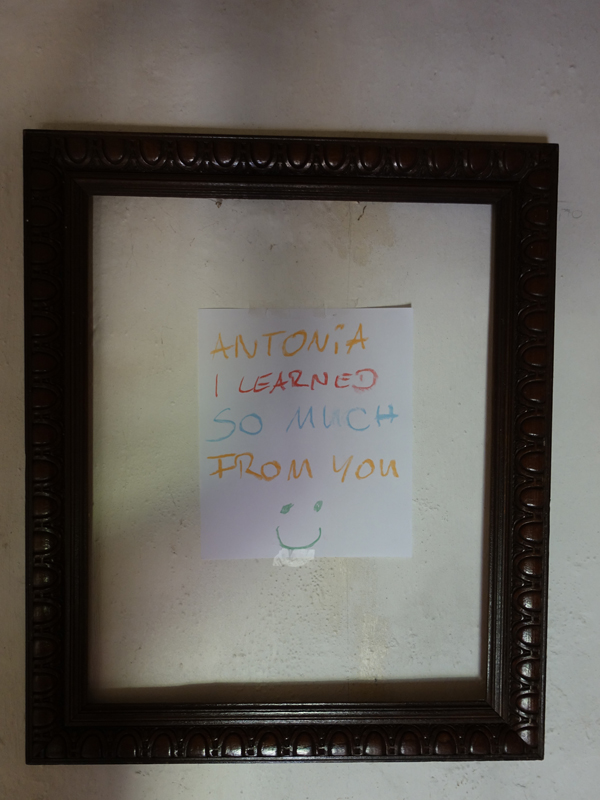 ANTONiA
I LEARNED
SO MUCH
FROM YOU